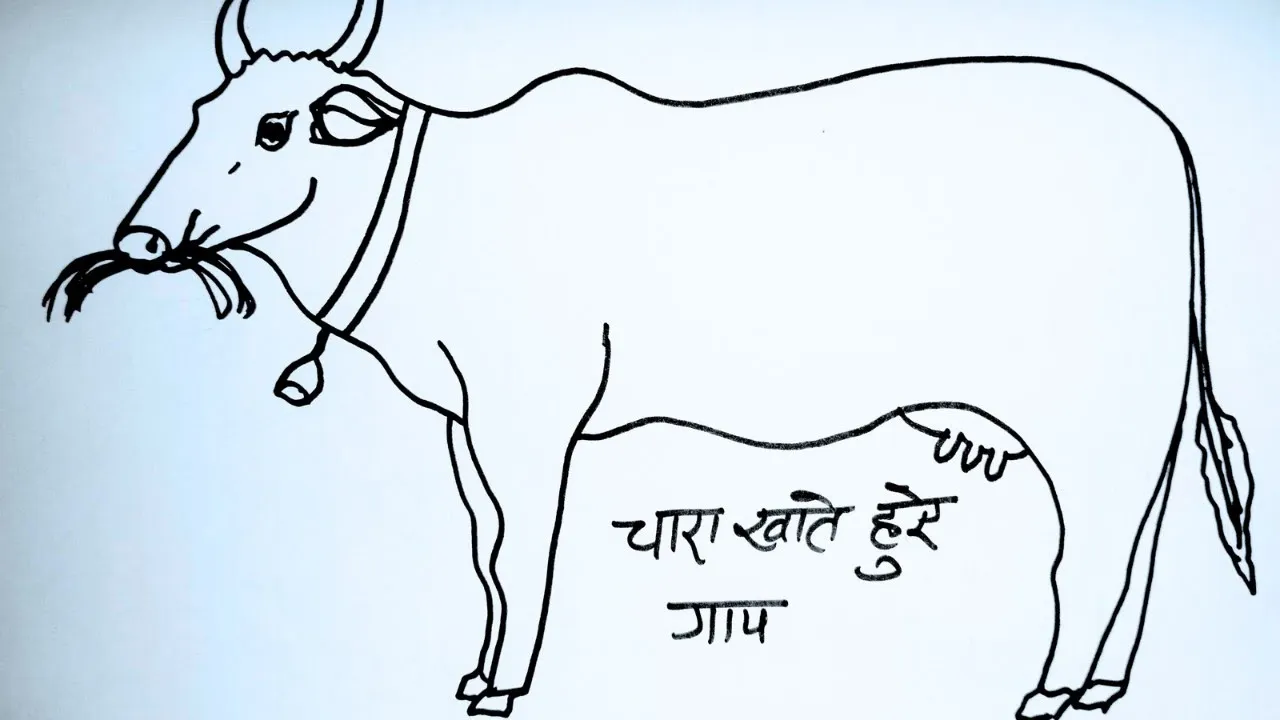 चारा खाते हुए
गाय